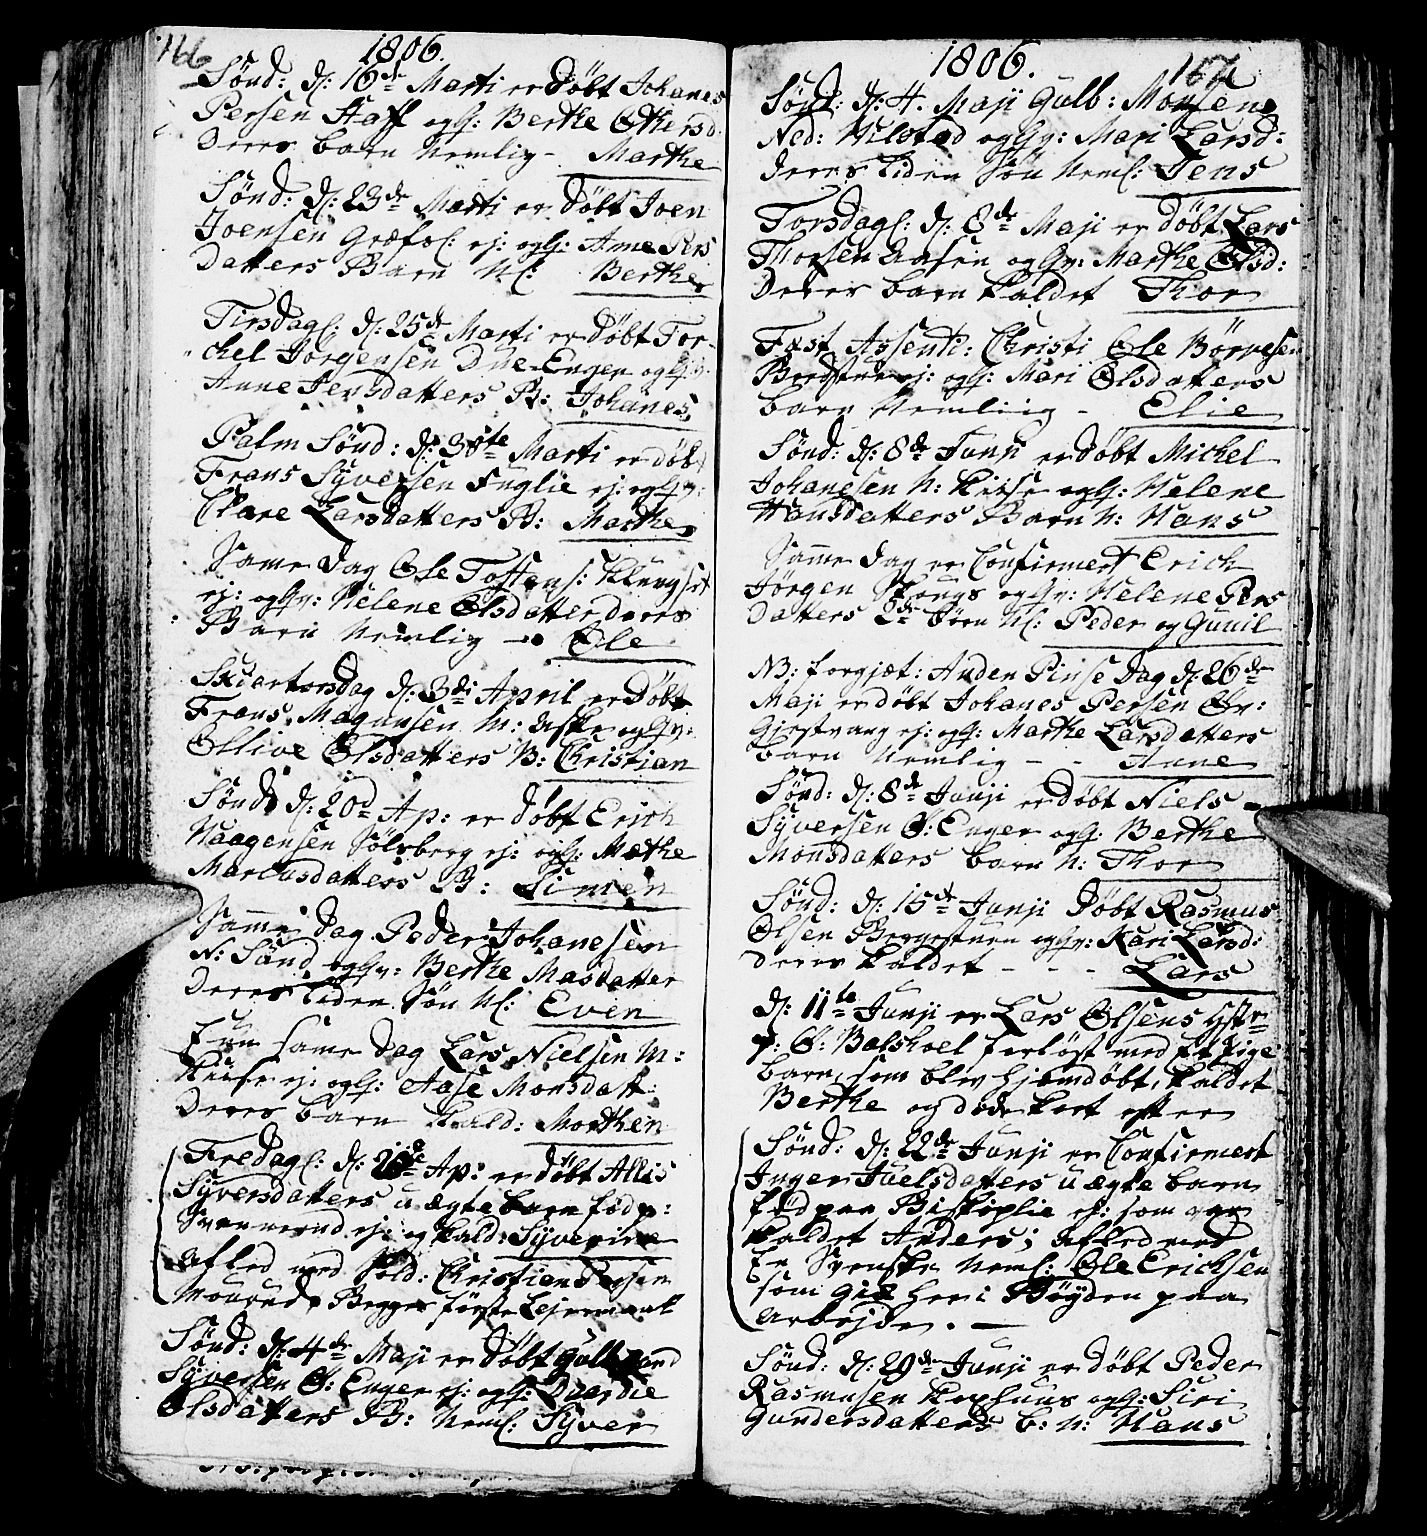 166
1806.
Sönd: d: 16de Marti er Döbt Johanes
Persen Haff og Hg: Berthe Othersd
Deres barn Nemlig - Marthe
Sönd: d: 23de Marti er Döbt Joen
Joensen Græfsl: ej: og Hg: Anne Pers
Datters Barn Nl: Berthe
Tirsdagl: d: 25de Marti er Döbt Tor-
chel Jörgensen Due-Enger og Hg:
Anne Jensdatters B: Johanes
Palm Sönd: d: 30te Marti er döbt
Frans Syversen Fuglie ej: og Hg:
Clare Larsdatters B: Marthe
Same Dag Ole Tostens:
ej: og Hg: Helene Olsdatter deres
Barn Nemlig - Ole
Skiertorsdag d: 3di April er Döbt
Frans Magnusen M: og Hg:
Ollive Olsdatters B: Christian
Sönd: d: 20de Ap: er döbt Erich
Haagensen Sölvberg ej: og Hg: Mathe
Marcusdatters B: Simen
Samme Dag Peder Johanesen
N: Sand og Hg: Berthe Masdatter
Deres liden Sön Nl: Even
Enn same Dag Lars Nielsen M:
Kiise ej: og Hg: Aase Monsdatt:
Deres barn kald: Morthen
Fredagl: d: Ap: er Döbt Allis
Syversdatters uægte barn föd p:
ej: og kald: Syverine
afled med Sold: Christian Persen
förste Leiermaal
Sönd: d: 4de Maji er Döbt Gulbrand
Syversen Ö: Enger ej: og Hg: Dorthe
Olsdatters B: Neml: Syver
1806.
167
Sönd: d: 4. Maji Gulb: Monsen
Ned: Hilstad og Hg: Mari Larsd:
deres liden Sön Neml: Jens
Torsdagl: d: 8de Maji er döbt Lars
Thorsen Aasen og Hg: Marthe Olsd:
Deres barn kaldet Thor
Fæst. Assenti: Christi Ole Börresen
ej: og Hg: Mari Olsdatters
barn Nemliig - Elie
Sönd: d: 8de Junii er Döbt Michel
Johanesen N: Kiise og Hg: Helene
Hansdatters Barn N: Hans
Samme Dag er Confirmert Erich
Jörgen og Hg: Helene Pers
Datters 2de Börn Nl: Peder og Gunil
NB: forgjæt: Anden Pinse Dag d: 26de
Maji er döbt Johanes Persen Öv:
Gjestvang ej: og Hg: Marthe Larsdatters
barn Nemlig - - Anne
Sönd: d: 8de Junji er Döbt Niels
Syversen Ö: Enger og Hg: Berthe
Monsdatters barn N: Thor
Sönd: d: 15de Junji Döbt Rasmus
Olsen og Hg: Kari Larsd:
Deres kaldet - - - Lars
d: 11te Junji er Lars Olsens Hstr
p: Ö: Balshoel forlöst med Et Pige
barn, som blev hjemdöbt, kaldet
Berthe og döde kort efter
Sönd: d: 22de Junji er Confirmert
Inger Juelsdatters uægte barn
föd paa Biskoplie ej: som var
kaldet Anders; afled med
En Svenske Neml: Ole Erichsen
som gik her i Bÿgden paa
arbejde. -
Sönd: d: 29de Junji er döbt Peder
Rasmusen og Hg: Siri
Gundersdatters b: N: Hans